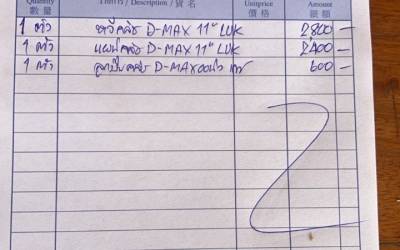 Quantity รายการ / Description / 貨名 Unitprice Amount
數量 價格 銀額
1 ตัว หวีคลัช D-MAX 11" LUK 2800 —
1 ตัว แผ่นคลัช D-MAX 11" LUK 2400 —
1 ตัว ลูกปืนคลัช D-MAX 600 —